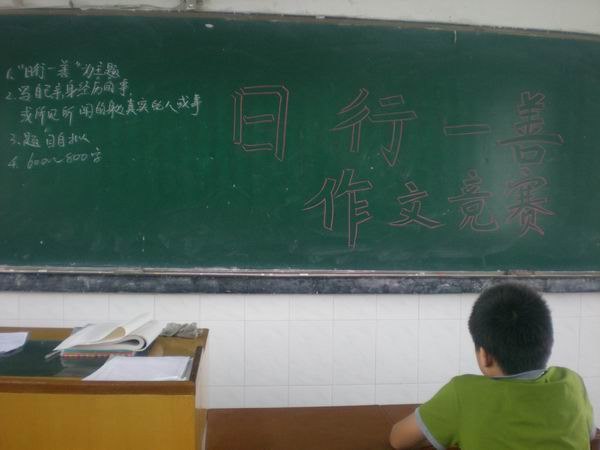 1. "日行一善"为主题
2. 写自己亲身经历的事,
或所见所闻的真实的人或事
3. 题目自拟
4. 600~800字
日行一善
作文竞赛